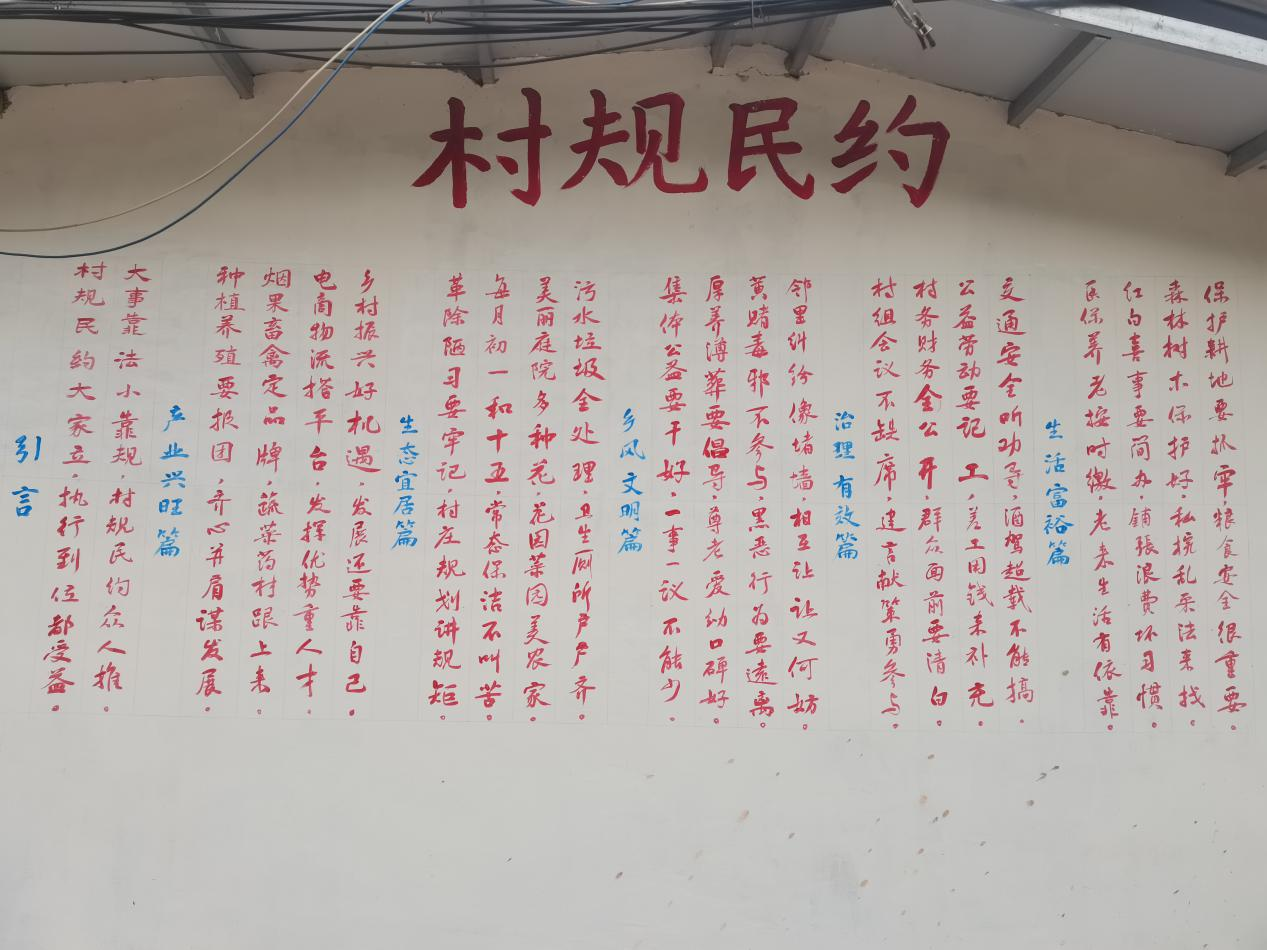 村规民约
引言
村规民约大家立,执行到位都受益。
大事靠法小靠规,村规民约众人推。
产业兴旺篇
种植养殖要报团,齐心并肩谋发展。
烟果畜禽定品牌,蔬菜药材跟上来。
电商物流搭平台,发挥优势重人才。
乡村振兴好机遇,发展还要靠自己。
生态宜居篇
革除陋习要牢记,村庄规划讲规矩。
每月初一和十五,常态保洁不叫苦。
美丽庭院多种花,花园菜园美农家。
污水垃圾全处理,卫生厕所户户齐。
乡风文明篇
集体公益要干好,一事一议不能少。
厚养薄葬要倡导,尊老爱幼口碑好。
黄赌毒邪不参与,黑恶行为要远离。
邻里纠纷像堵墙,相互让让又何妨。
治理有效篇
村组会议不缺席,建言献策勇参与。
村务财务全公开,群众面前要清白。
公益劳动要记工,差工用钱来补充。
交通安全听劝导,酒驾超载不能搞。
生活富裕篇
医保养老按时缴,老来生活有依靠。
红白喜事要简办,铺張浪費坏习惯。
森林树木保护好,私挖乱采法来找。
保护耕地要抓牢,粮食安全很重要。